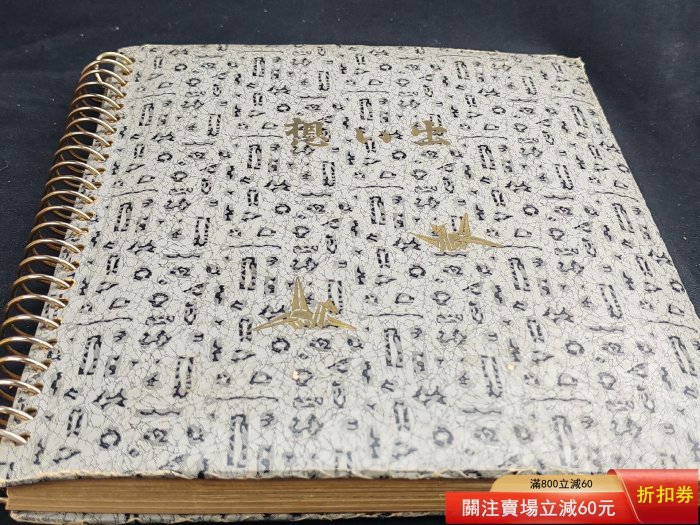 想い出
滿800立減60
關注賣場立減60元
折扣券